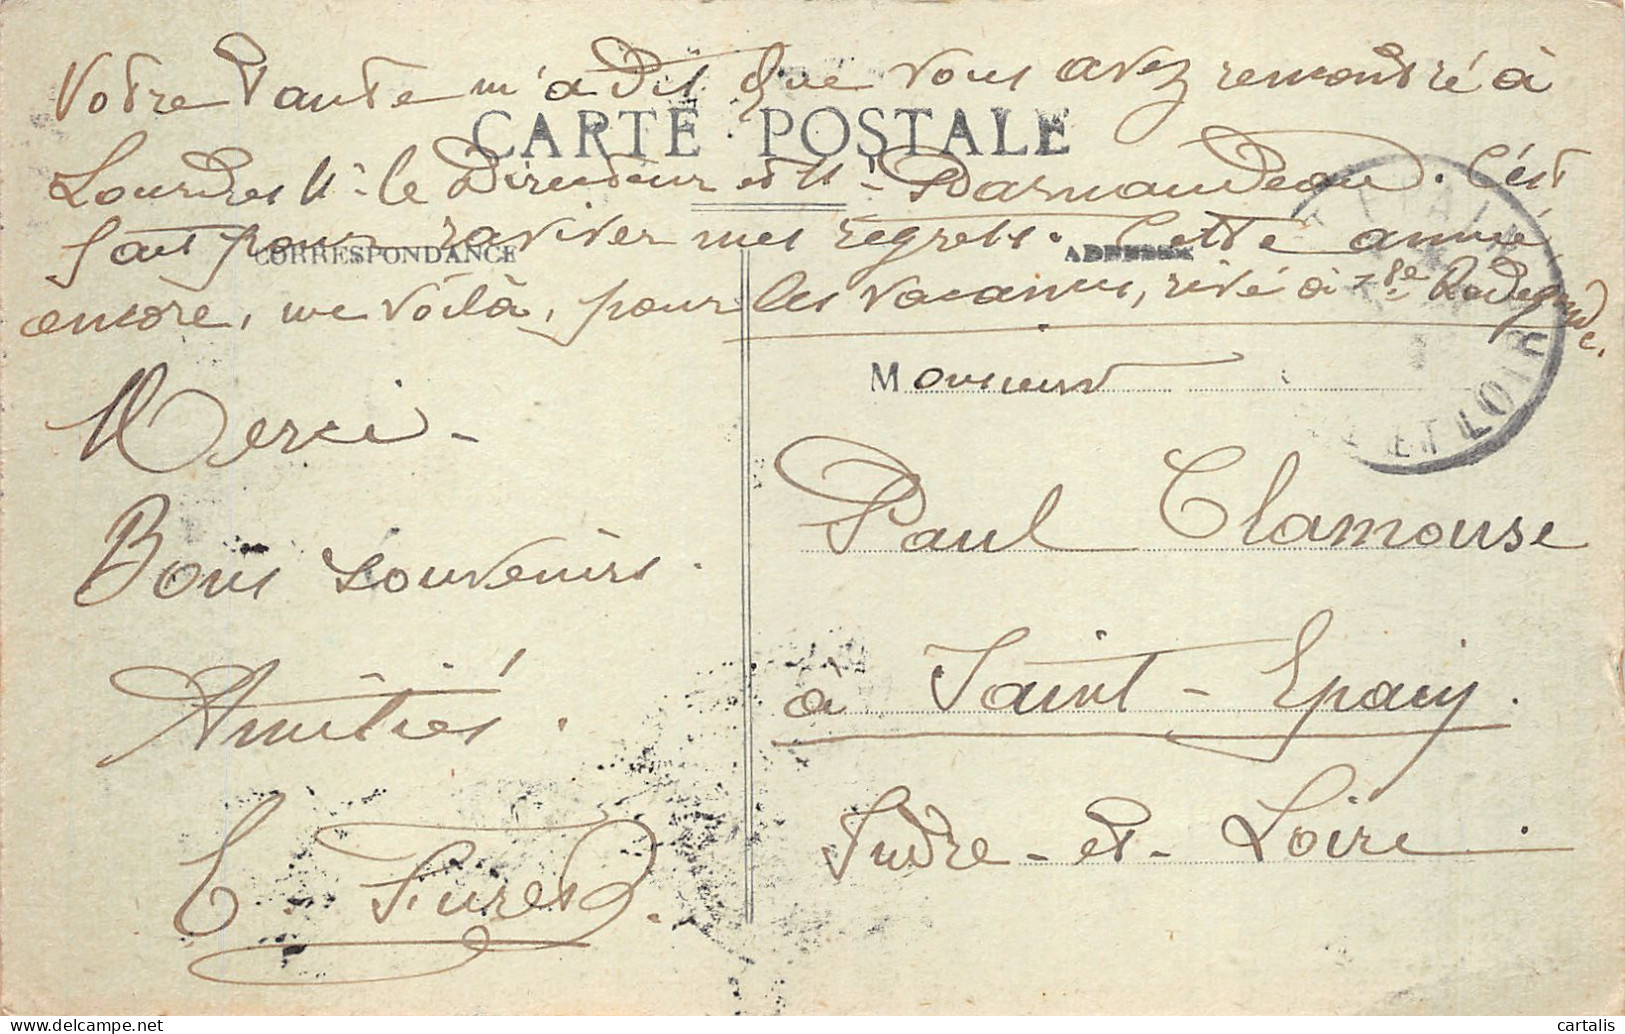 Votre Tante m'a dit que vous avez remontré à
CARTE POSTALE
Lourdes Mr. le Directeur et Mr. Darnaudeau. C'est
fait pour raviver mes regrets. Cette année
CORRESPONDANCE
ADRESSE
encore, me voilà, pour les vacances, rivé à Ste Radegonde.
Merci -
Bons souvenirs.
Amitiés.
E. Fures.
Monsieur
Paul Clamouse
à Saint-Epain.
Indre-et-Loire.
ST EPAIN
ET LOIRE
cartalis